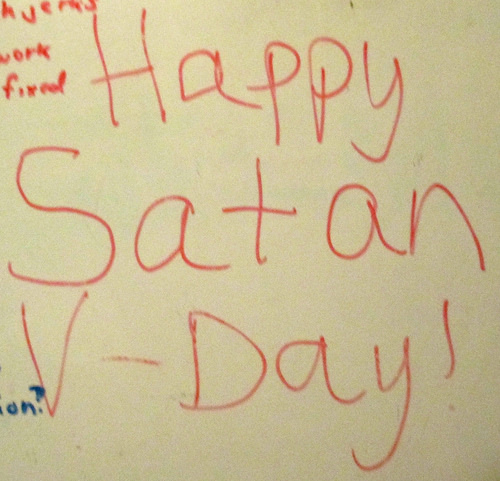 work
fixed
Happy
Satan
V-Day!